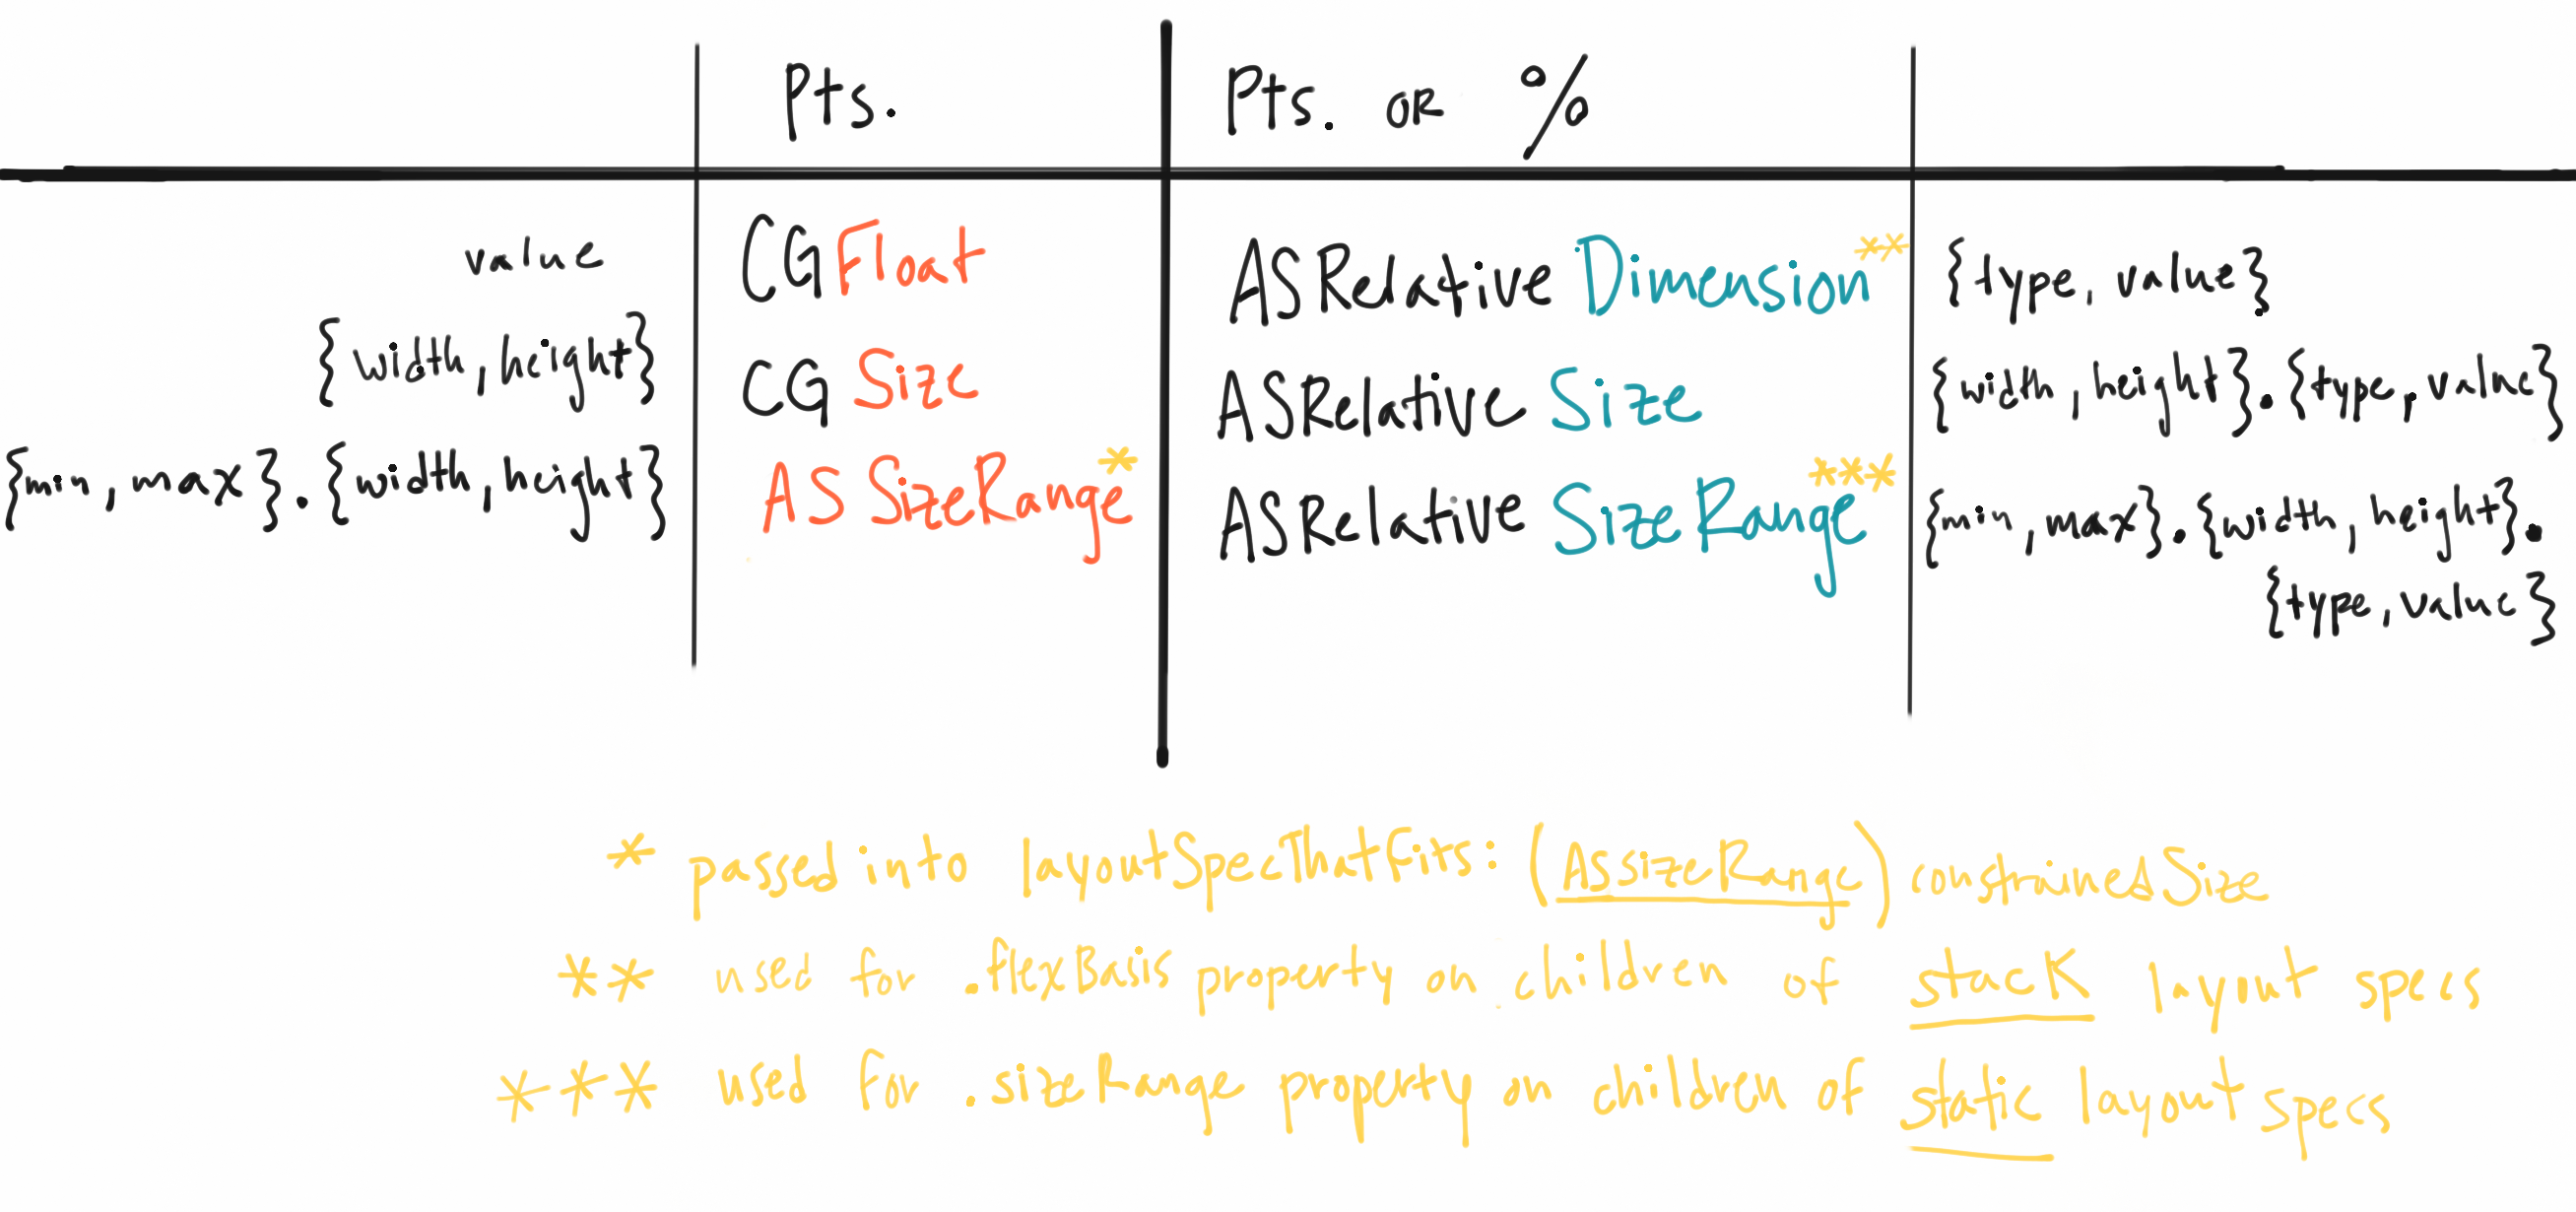 Pts. Pts. OR %
value CGFloat ASRelative Dimension** {type, value}
{width, height} CG Size ASRelative Size {width, height}.{type, value}
{min, max}.{width, height} AS SizeRange* ASRelative SizeRange*** {min, max}.{width, height}.
{type, value}
* passed into layoutSpecThatFits: (ASSizeRange) constrainedSize
** used for .flexBasis property on children of stack layout specs
*** used for .sizeRange property on children of static layout specs